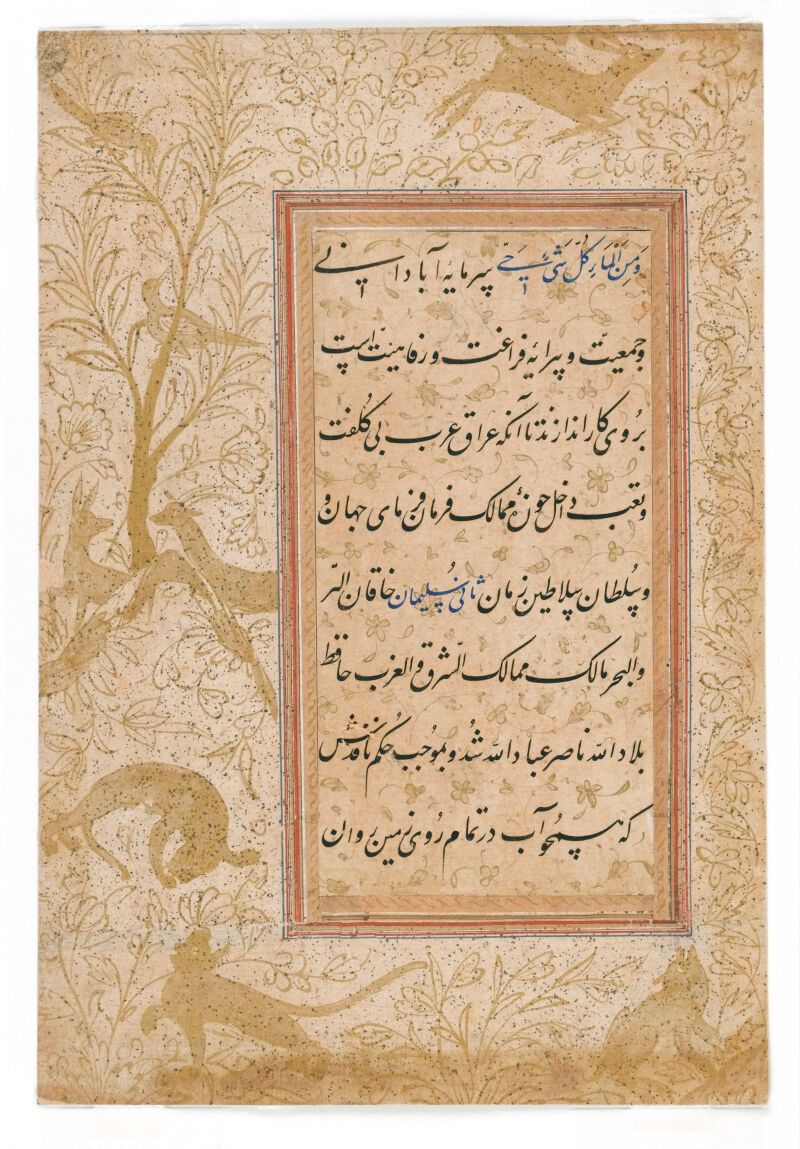 وَمِنَ الْمَاءِ كُلِّ شَیْءٍ حَیٍّ سرمایهٔ آبادانی
و جمعیّت و پیرایهٔ فراغت و رفاهیّت است
برُوی کار اندازند تا آنکه عراق عرب بی کُلفت
و تعب داخل حوزهٔ ممالک فرمان فرمای جهان و
و سُلطان سلاطین زمان ثانی سُلیمان خاقان البّر
والبحر مالک ممالک الشّرق و الغرب حافظ
بلاد اللّه ناصر عباد اللّه شُد و بمُوجب حُکم نافذش
که همچو آب در تمام رُوی زمین روان